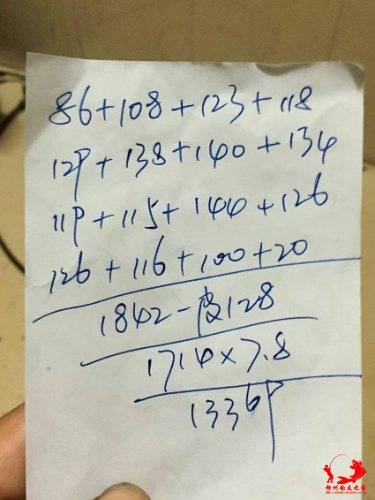 86+108+123+118
129+138+140+134
119+115+144+126
126+116+100+20
1842-皮128
1714×7.8
13369